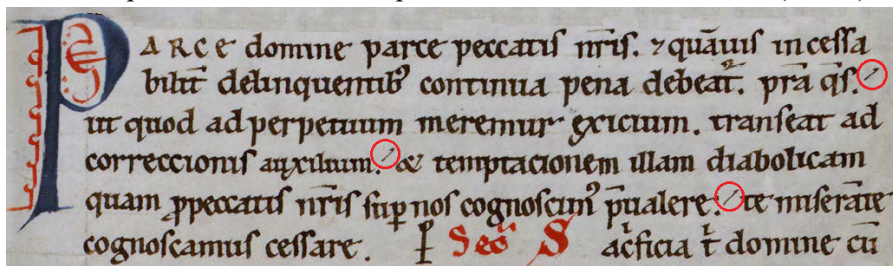 PARCE domine parce peccatiſ nr̄iſ. ⁊ quāuiſ inceſſa
bilit̄ delinquentib⁹ continua pena debeat᷑. p̄ra q̄ſ.
ut quod ad perpetuum meremur exicium. tranſeat ad
correccioniſ auxilium. & temptacionem illam diabolicam
quam ꝓpeccatiſ nr̄iſ ſup̄ noſ cognoſcim⁹ p̄ualere. te miſerāte
cognoſcamuſ ceſſare. Sec̄ S ac̄ficia t̄ domine cū